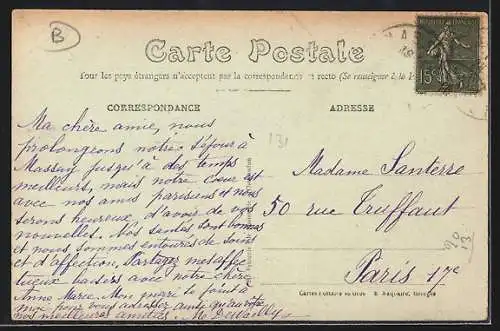 B
Carte Postale
RÉPUBLIQUE FRANÇAISE
15c
Tous les pays étrangers n'acceptent pas la correspondance au recto (Se renseigner à la
CORRESPONDANCE
ADRESSE
Ma chère amie, nous
prolongeons notre séjour à
Massay jusqu'à des temps
meilleurs, mais notre cœur est
avec nos amis parisiens et nous
serons heureux d'avoir de vos
nouvelles. Nos santés sont bonnes
et nous sommes entourés de soins
et d'affection. Partagez me affec
tueux baisers avec notre chère
Anne Marie. Mon mari se joint à
moi pour vous adresser ainsi
nos meilleures amitiés. M.
131
Madame Santerre
50 rue Truffaut
Paris 17e